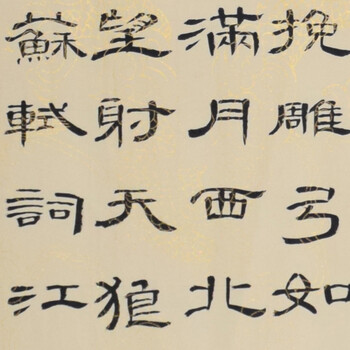 挽雕弓如
滿月西北
望射天狼
蘇軾詞江